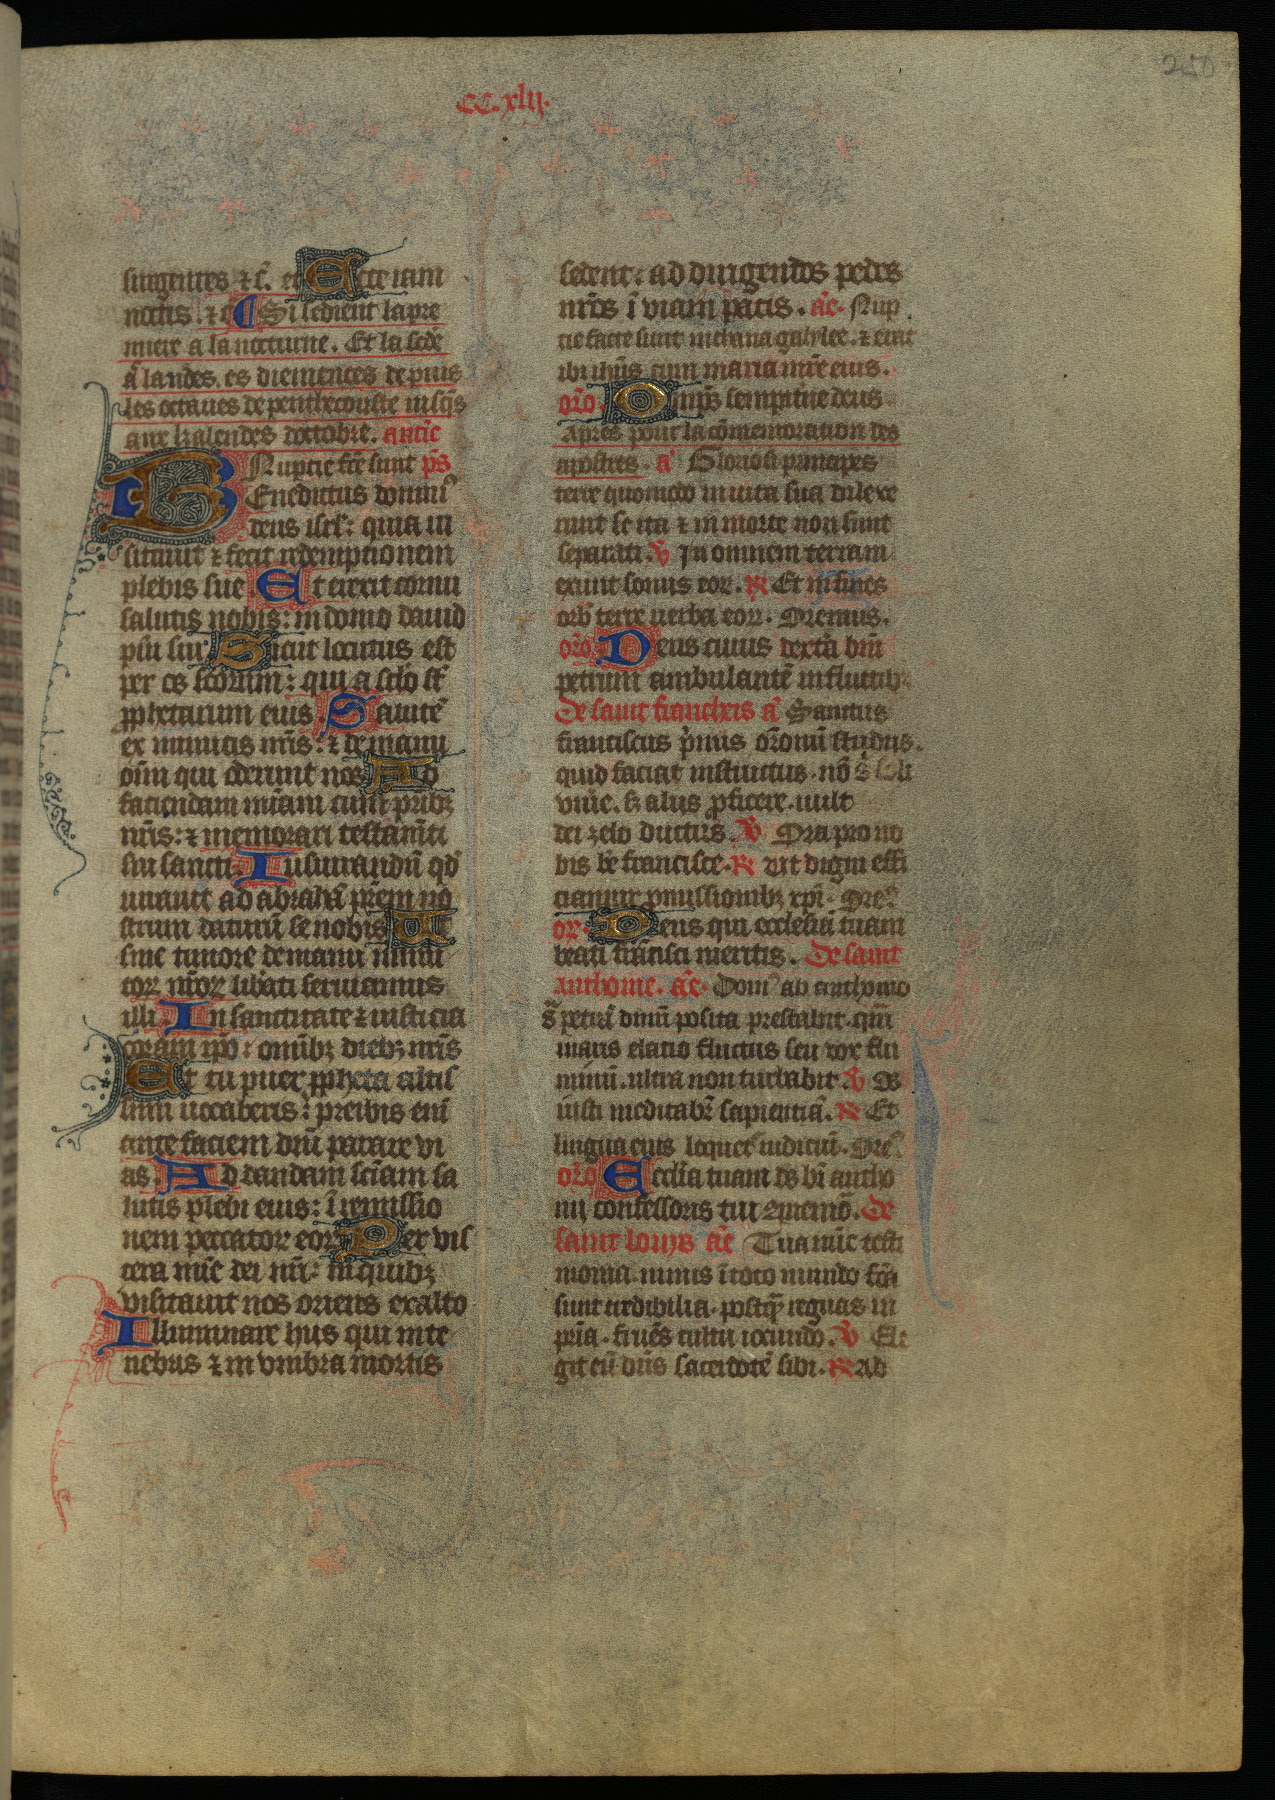 CC.xlij.
250
surgentes ⁊ c̃. et Ecce iam
noctis. ⁊ c̃ Si sedient la pre
miere a la nocturne. Et la sc̃de
a laudes. es diemences depuis
les octaues de penthecouste iusq̃s
aux kalendes doctobre. antiẽ
Nuptie fc̃e sunt p̃s
Benedictus domin᷒
deus isrl̃: quia ui
sitauit ⁊ fecit redemptionem
plebis sue Et erexit cornu
salutis nobis: in domo dauid
pũi sui Sicut locutus est
per os sc̃orum: qui a sc̃lo st̃
ꝓphetarum eius Salutẽ
ex inimicis nr̃is: ⁊ de manu
oĩm qui oderunt nos Ad
faciendam mĩam cum pr̃ibꝫ
nr̃is: ⁊ memorari testamẽti
sui sancti. Iusiurandũ qd̃
iurauit ad abrahã pr̃em no
strum daturũ se nobis Ut
sine timore de manu inimi
coꝝ nr̃oꝝ lib̃ati seruiamus
illi. In sanctitate ⁊ iusticia
coram ip̃o: omĩbꝫ diebꝫ nr̃is
Et tu puer ꝓpheta altis
simi uocaberis: preibis enĩ
ante faciem dñi parare vi
as. Ad dandam sciẽam sa
lutis plebi eius: ĩ remissio
nem peccatoꝝ eoꝝ Per vis
cera mĩe dei nr̃i: in quibꝫ
visitauit nos oriens ex alto
Illuminare hus qui in te
nebris ⁊ in vmbra mortis
sedent: ad dirigendos pedes
nr̃os ĩ viam pacis. añe. Nup
cie facte sunt in chana galylee. ⁊ erat
ibi ih̃us cum maria mr̃e eius.
or̃o. Omp̃s sempitñe deus
Apres pour la cõmemoration des
apostres. ã Gloriosi principes
terre quomodo in uita sua dilexe
runt se ita ⁊ in morte non sunt
separati. ℣ In omnem terram
exiuit sonus eoꝝ. ℟ Et in fines
orb̃ terre uerba eoꝝ. Oremus.
or̃o Deus cuius dextã bm̃
petrum ambulantẽ in fluctibꝫ
De saint franchois ã Sanctus
franciscus p̃uius or̃onũ studiis.
quid faciat instructus. nõ s̃ soli
viuẽ. sꝫ aliis ꝓficere. uult
dei zelo ductus. ℣ Ora pro no
bis bẽ francisce. ℟ Vt digni effi
ciamur ꝓmissionibꝫ xp̃i. Ore᷒
or. Deus qui ecclesiã tuam
beati frãcisci meritis. De saint
anthoine. añe. Dom᷒ ab anthonio
s̃ petrã dum̃ posita prestabit. qm̃
maris elatio fluctus seu vox flu
minũ. ultra non turbabit ℣ Os
iusti meditab̃r sapientiã. ℟ Et
lingua eius loquet᷒ iudiciũ. Ore᷒
or̃o Ecclĩa tuam ds bĩ antho
nij confessoris tui q̃uemõ. De
saint loys añe Tua nũc testi
monia. nimis ĩ toto mundo fc̃a
sunt credibilia. postq̃ regnas in
pr̃ia. fruẽs cultu iocundo. ℣ Ele
git eũ dñs sacerdotẽ sibi. ℟ Ad